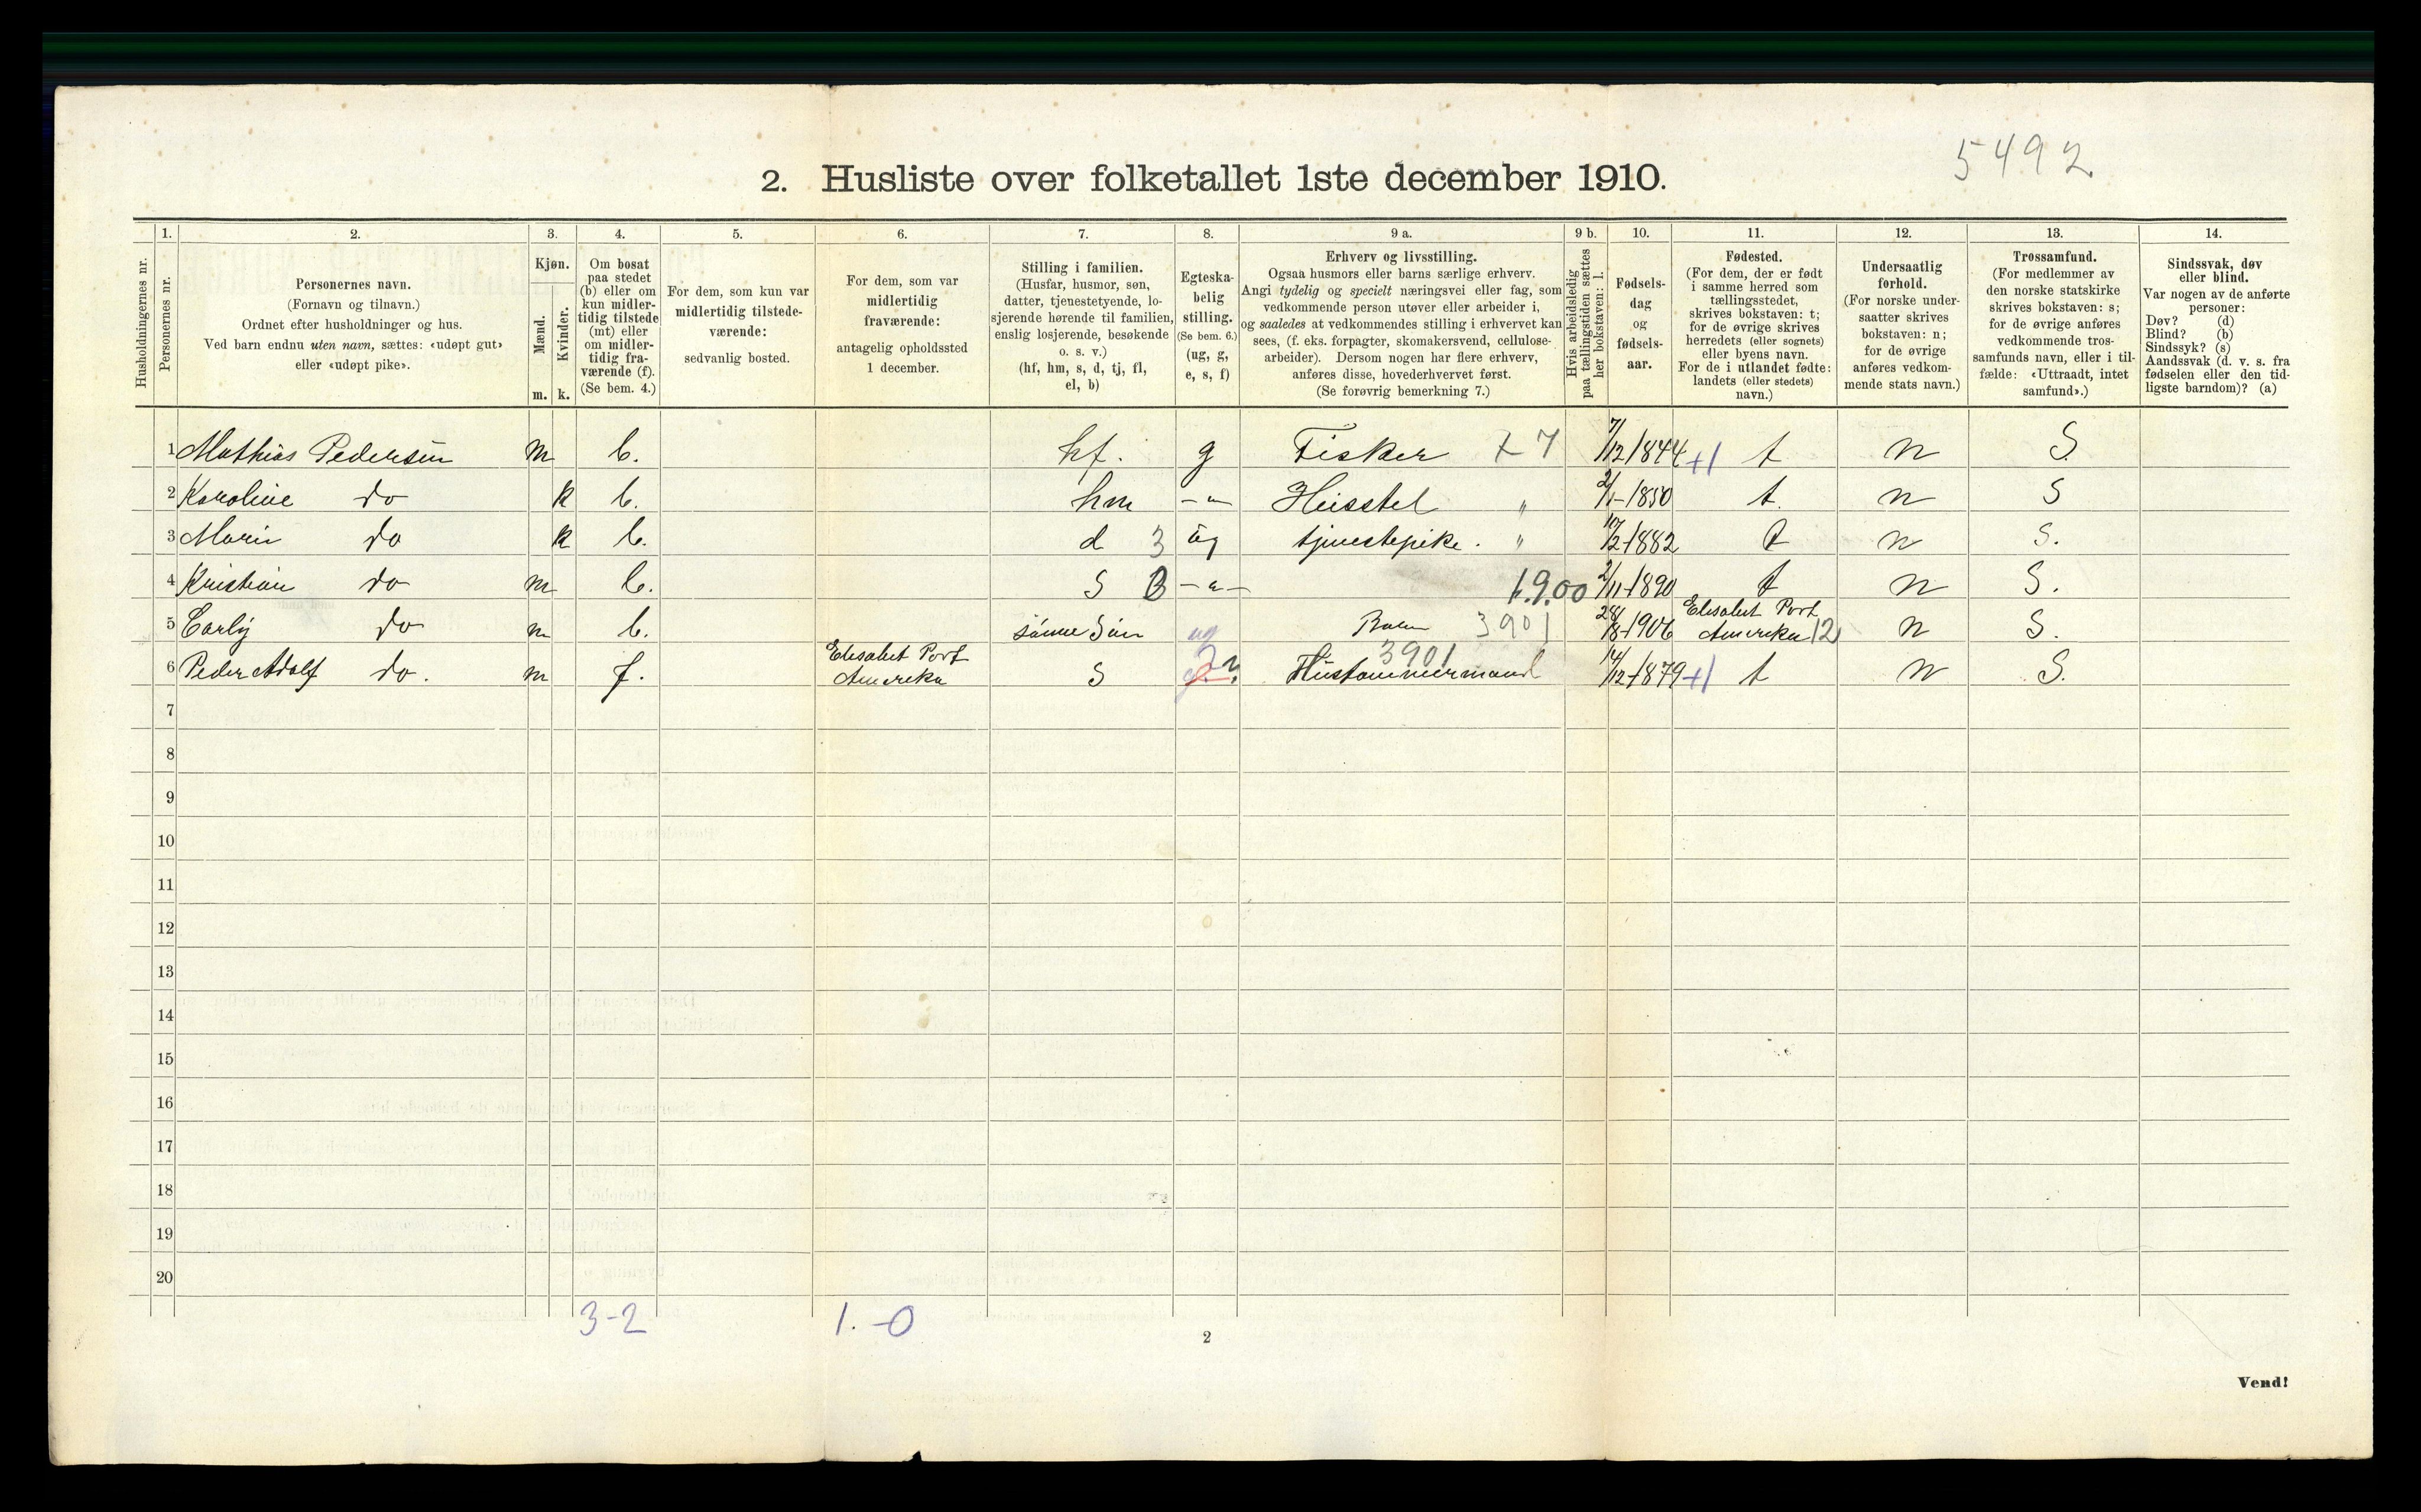 5492
2. Husliste over folketallet 1ste december 1910.
Husholdningernes nr.
1.
Personernes nr.
2.
Personernes navn.
(Fornavn og tilnavn.)
Ordnet efter husholdninger og hus.
Ved barn endnu uten navn, sættes: «udøpt gut»
eller «udøpt pike».
3.
Kjøn.
Mænd.
Kvinder.
m. k.
4.
Om bosat
paa stedet
(b) eller om
kun midler-
tidig tilstede
(mt) eller
om midler-
tidig fra-
værende (f).
(Se bem. 4.)
5.
For dem, som kun var
midlertidig tilstede-
værende:
sedvanlig bosted.
6.
For dem, som var
midlertidig
fraværende:
antagelig opholdssted
1 december.
7.
Stilling i familien.
(Husfar, husmor, søn,
datter, tjenestetyende, lo-
sjerende hørende til familien,
enslig losjerende, besøkende
o. s. v.)
(hf, hm, s, d, tj, fl,
el, b)
8.
Egteska-
belig
stilling.
(Se bem. 6.)
(ug, g,
e, s, f)
9 a.
Erhverv og livsstilling.
Ogsaa husmors eller barns særlige erhverv.
Angi tydelig og specielt næringsvei eller fag, som
vedkommende person utøver eller arbeider i,
og saaledes at vedkommendes stilling i erhvervet kan
sees, (f. eks. forpagter, skomakersvend, cellulose-
arbeider). Dersom nogen har flere erhverv,
anføres disse, hovederhvervet først.
(Se forøvrig bemerkning 7.)
9 b.
Hvis arbeidsledig
paa tællingstiden sættes
her bokstaven: l.
10.
Fødsels-
dag
og
fødsels-
aar.
11.
Fødested.
(For dem, der er født
i samme herred som
tællingsstedet,
skrives bokstaven: t;
for de øvrige skrives
herredets (eller sognets)
eller byens navn.
For de i utlandet fødte:
landets (eller stedets)
navn.)
12.
Undersaatlig
forhold.
(For norske under-
saatter skrives
bokstaven: n;
for de øvrige
anføres vedkom-
mende stats navn.)
13.
Trossamfund.
(For medlemmer av
den norske statskirke
skrives bokstaven: s;
for de øvrige anføres
vedkommende tros-
samfunds navn, eller i til-
fælde: «Uttraadt, intet
samfund».)
14.
Sindssvak, døv
eller blind.
Var nogen av de anførte
personer:
Døv? (d)
Blind? (b)
Sindssyk? (s)
Aandssvak (d. v. s. fra
fødselen eller den tid-
ligste barndom)? (a)
1 Mathias Pedersen m b. hf. g Fisker 7 7/12 1844 +1 t n S.
2 Karoline do k b. hm -"- Husstel " 2/1-1850 t. n S
3 Marie do k b. d 3 ug tjenestepike. " 1882 t n S.
4 Kristian do m b. S 3 -"- 1.9.00 2/11-1890 t n S.
5 Carly do m b. sønne Søn ug Barn 3901 28/8-1906 Elisabet Port Amerika 12 n S.
6 Peder Adolf do. m f. Elisabet Port Amerika S Hustømmermand 3901 14/12-1879 +1 t n S.
7
8
9
10
11
12
13
14
15
16
17
18
19
20
3-2 1.-0
2
Vend!